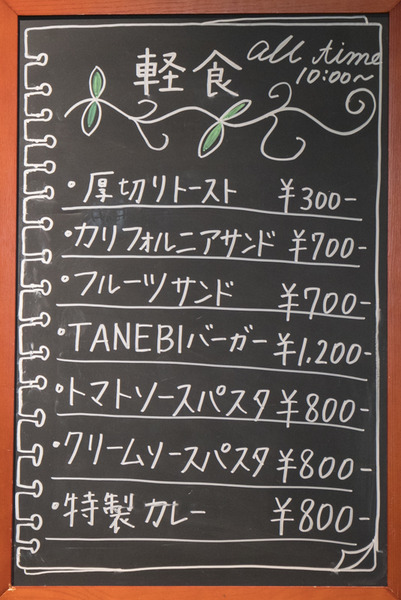 軽食 all time
10:00~
・厚切りトースト ¥300-
・カリフォルニアサンド ¥700-
・フルーツサンド ¥700-
・TANEBIバーガー ¥1,200-
・トマトソースパスタ ¥800-
・クリームソースパスタ ¥800-
・特製カレー ¥800-